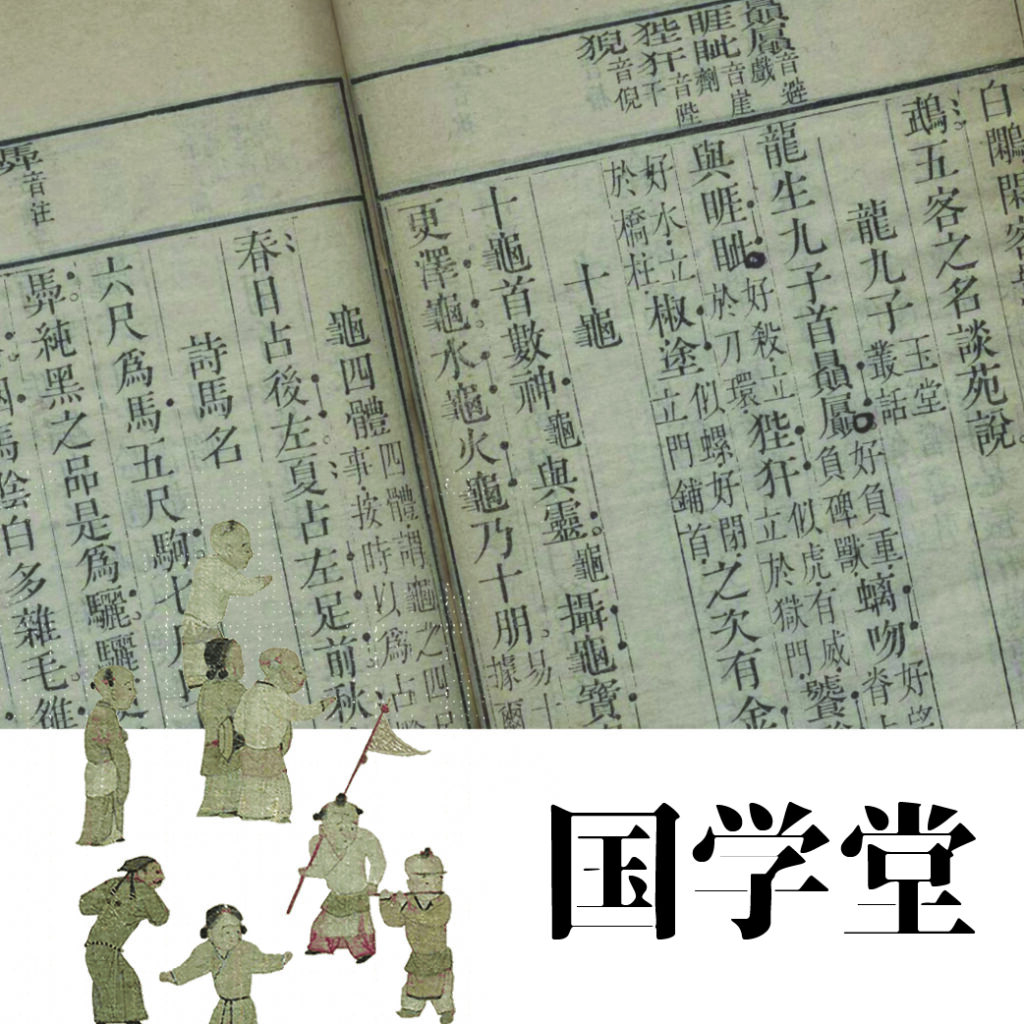 贔屭音避戲
睚眦音崖劑
狴犴音陛干
猊音倪
白鷴閑客
鵡五客之名談苑說
龍九子 玉堂叢話
龍生九子首贔屭好負重負碑獸螭吻好望脊上
與睚眦好殺立於刀環狴犴似虎有威立於獄門饕
好水立於橋柱椒塗似螺好閉立門鋪首之次有金
十龜
十龜首數神龜與靈龜攝龜寶
更澤龜水龜火龜乃十朋易十據爾
馵音注
龜四體四體謂龜之四足事按時以爲占
春日占後左夏占左足前秋
詩馬名
六尺爲馬五尺駒七尺
馵純黑之品是爲驪驪
馬陰白多雜毛騅
国学堂